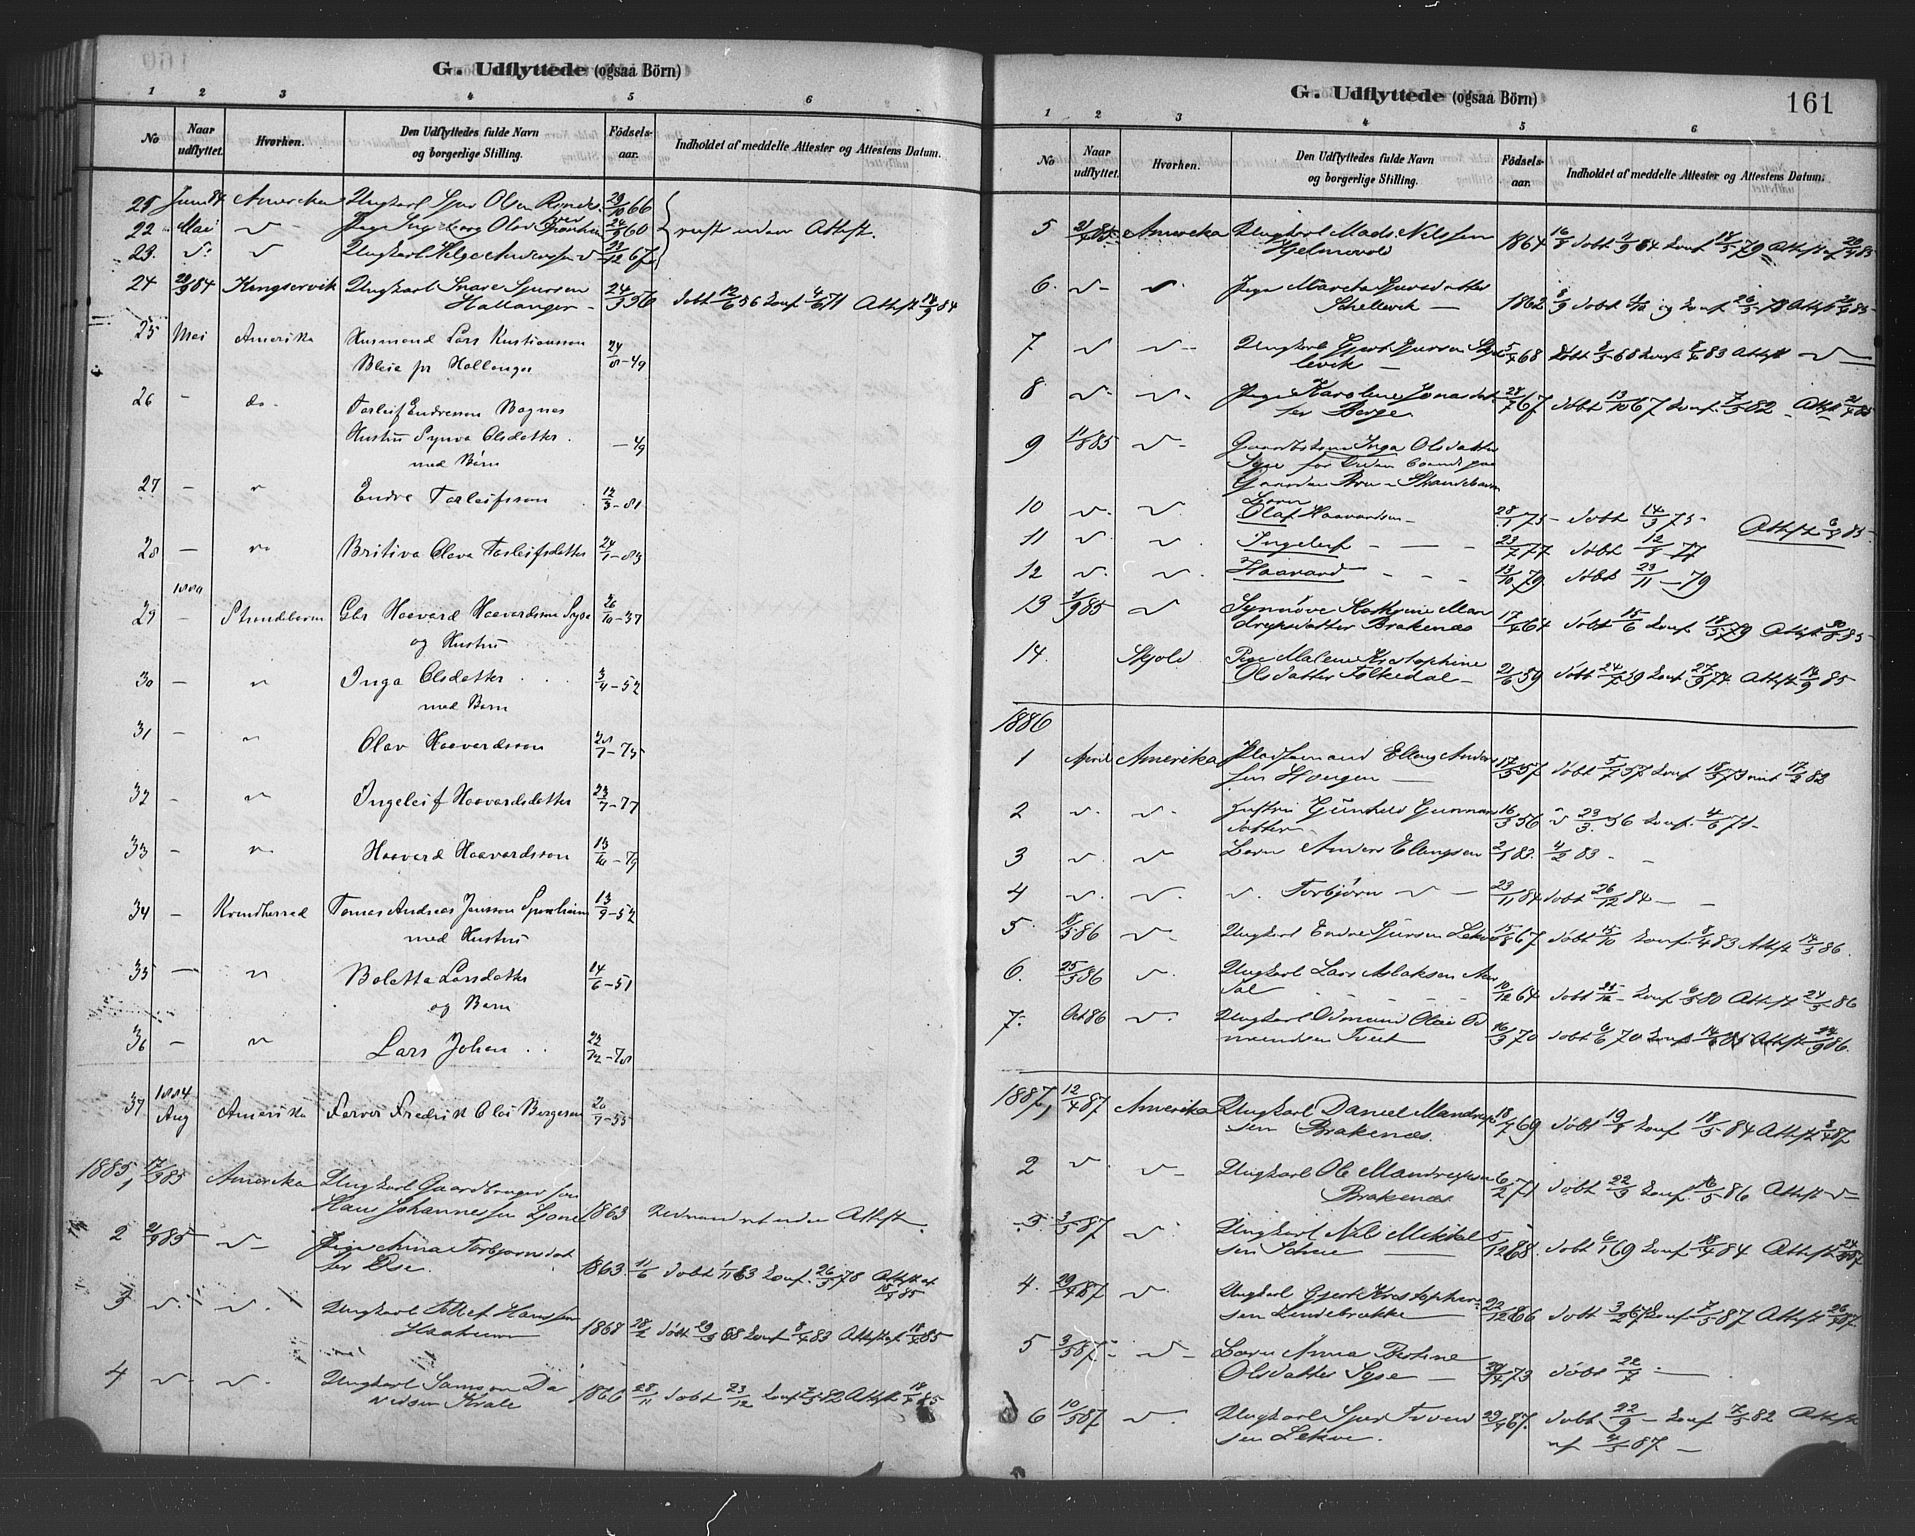 G. Udflyttede (ogsaa Börn)
1 2 3 4 5 6
No Naar udflyttet. Hvorhen. Den Udflyttedes fulde Navn og borgerlige Stilling. Födsels-aar. Indholdet af meddelte Attester og Attestens Datum.
21 Juni 84 Amerika Ungkarl Sjur Olsen 29/10 66
22 Mai " Pige Ingeborg 60
23. " " Ungkarl Helge Anderssen 23/12 67 reist uden Attest.
24 84 Kingservik Ungkarl Snare Sjursen
Hallanger 24/3 56 døbt 12/6 56 Konf 4/6 71 Attest 84
25 Mai Amerika Husmand Lars Kristiansson
Bleie pr Hallanger 24/8 - 49
26 - do. Torleif Endresson Bagnes
Hustru Synva Olsdatter. - 49
med Børn
27 - " Endre Torleifsson 12/3 - 81
28 - " Britiva Olava Torleifsdatter 24/1 - 83
1880
29 - Strandebarm Gbr Haavard Haavardsson Syse 26/10 - 37
og Hustru
30 - " Inga Olsdatter 3/4 - 52
med Børn
31 - " Olav Haavardsson 28/1 - 75
32 - " Ingeleif Haavardsdatter 23/7 - 77
33 - " Haavard Haavardsson 13/10 - 79
34 - Kvindherred Tomas Andreas Jansson Sponheim 13/9 - 52
med Hustru
35 - " Boletta Larsdatter 14/6 - 51
og Barn
36 - " Lars Johan 22/12 - 78
37 1884 Aug Amerika Farver Fredrik Olai Børgesen 20/7 - 55
1885, 17/3 85 Amerika Ungkarl Gaardbruger søn
Hans Johannessen Ljone 1863 uden Attest.
2 21/4 85 " Pige Anna Torbjørnsdat
ter Øse. 1863 11/6 døbt 1/11 63 Konf. 26/5 78 Attest af
18/4 85
3 " " Ungkarl Hanssen
Haaheim 1868 18/2 døbt 29/3 68 Konf 8/4 83 Attest af 18/4 85
4 " " Ungkarl Samson Da
vidsen Kvale 1866 23/11 døbt 23/12 Konf 7/5 82 Attest 18/4 85
G. Udflyttede (ogsaa Börn) 161
1 2 3 4 5 6
No Naar udflyttet. Hvorhen. Den Udflyttedes fulde Navn og borgerlige Stilling. Födsels-aar. Indholdet af meddelte Attester og Attestens Datum.
5 21/4 85 Amerika Ungkarl Mads Nilssen
Hjelmevold 1864 16/8 døbt 64 Konf 18/5 79 Attest af 20/4 85
6. " " Pige Marita Sjursdatter
Skeltevik 1862 døbt og Konf 26/5 78 Attest 85
7 " " Ungkarl Gjert Sjursen Skjel
tevik 5/4 68 Døbt 3/5 68 Konf 8/4 83 Attest "
8 " " Pige Karolene Jonasdat
ter Berge 28/7 67 døbt 13/10 67 Konf. 7/5 82 Attest 21/4 85
9 1/8 85 " Inga Olsdatter
Syse før boende paa
Gaarden Strandebarm
10 " " Børn
Olaf Haavardsen 28/1 75 - døbt 14/3 75 - Attest 6/8 85
11 " " Ingeleif - - 23/7 77 døbt 12/8 - 77
12 " " Haavard - - 13/10 79 døbt 23/11 - 79
13 1/9 85 " Synnøve Kathrine Man
drupsdatter Brakenæs 17/4 64 døbt 15/6 Konf 18/5 79 Attest 85
14. Skjold Pige Malene Kristophine
Olsdatter Folkedal 21/6 59 døbt 24/7 59 Konf 27/9 74 Attest 14/9 85
1886
1 April Amerika Pladsemand Elling Ander
sen Haugen 17/5 57 døbt 5/7 57 Konf 18/5 73 82
2 " " Hustru Gunhild Gunnars
datter 16/3 56 " 23/3. 56 Konf. 4/6 71 -
3 " " Børn Anders Ellingsen 2/1 83. 4/2 83 -
4 " " " Torbjørn " 23/11 84 døbt 26/12 84 -
5 18/5 86 " Ungkarl Endre Sjursen Lekve 15/8 67 døbt 15/10 Konf. 8/4 83 Attest 14/5 86
6. 25/5 86 " Ungkarl Lars Aslaksen
dal 10/12 64 døbt Konf 80 Attest 24/5 86
7. Oct 86 " Ungkarl Odmund Olai Od
mundsen Tveit 16/3 70 døbt 6/6 70 Konf 14/6 85 Attest 86.
1887, 12/4 87 Amerika Ungkarl Daniel Mandrup
sen Brakenæs. 18/7 69 døbt 19/8 Konf 18/5 84 Attest 8/4 87
2 " " Ungkarl Ole Mandrupsen
Brakenæs 6/2 71 døbt 22/3 Konf. 16/5 86 Attest "
3 3/5 87 " Ungkarl Nils Mikkel
sen 5/12 68. døbt 6/1 69 Konf 84 Attest 87
4. 29/4 87 " Ungkarl Gjert Kristopher
sen Lindebrække 22/12 66 døbt 3/2 67 Konf 87 Attest 26/4 87.
5 3/5 87 " Barn Anna Bertine
Olsdatter Syse 73 døbt 22/ -
6 10/5 87 " Ungkarl Sjur
sen Lekve. døbt 22/9 - Konf 7/5 82 Attest
af 4/5 87 -